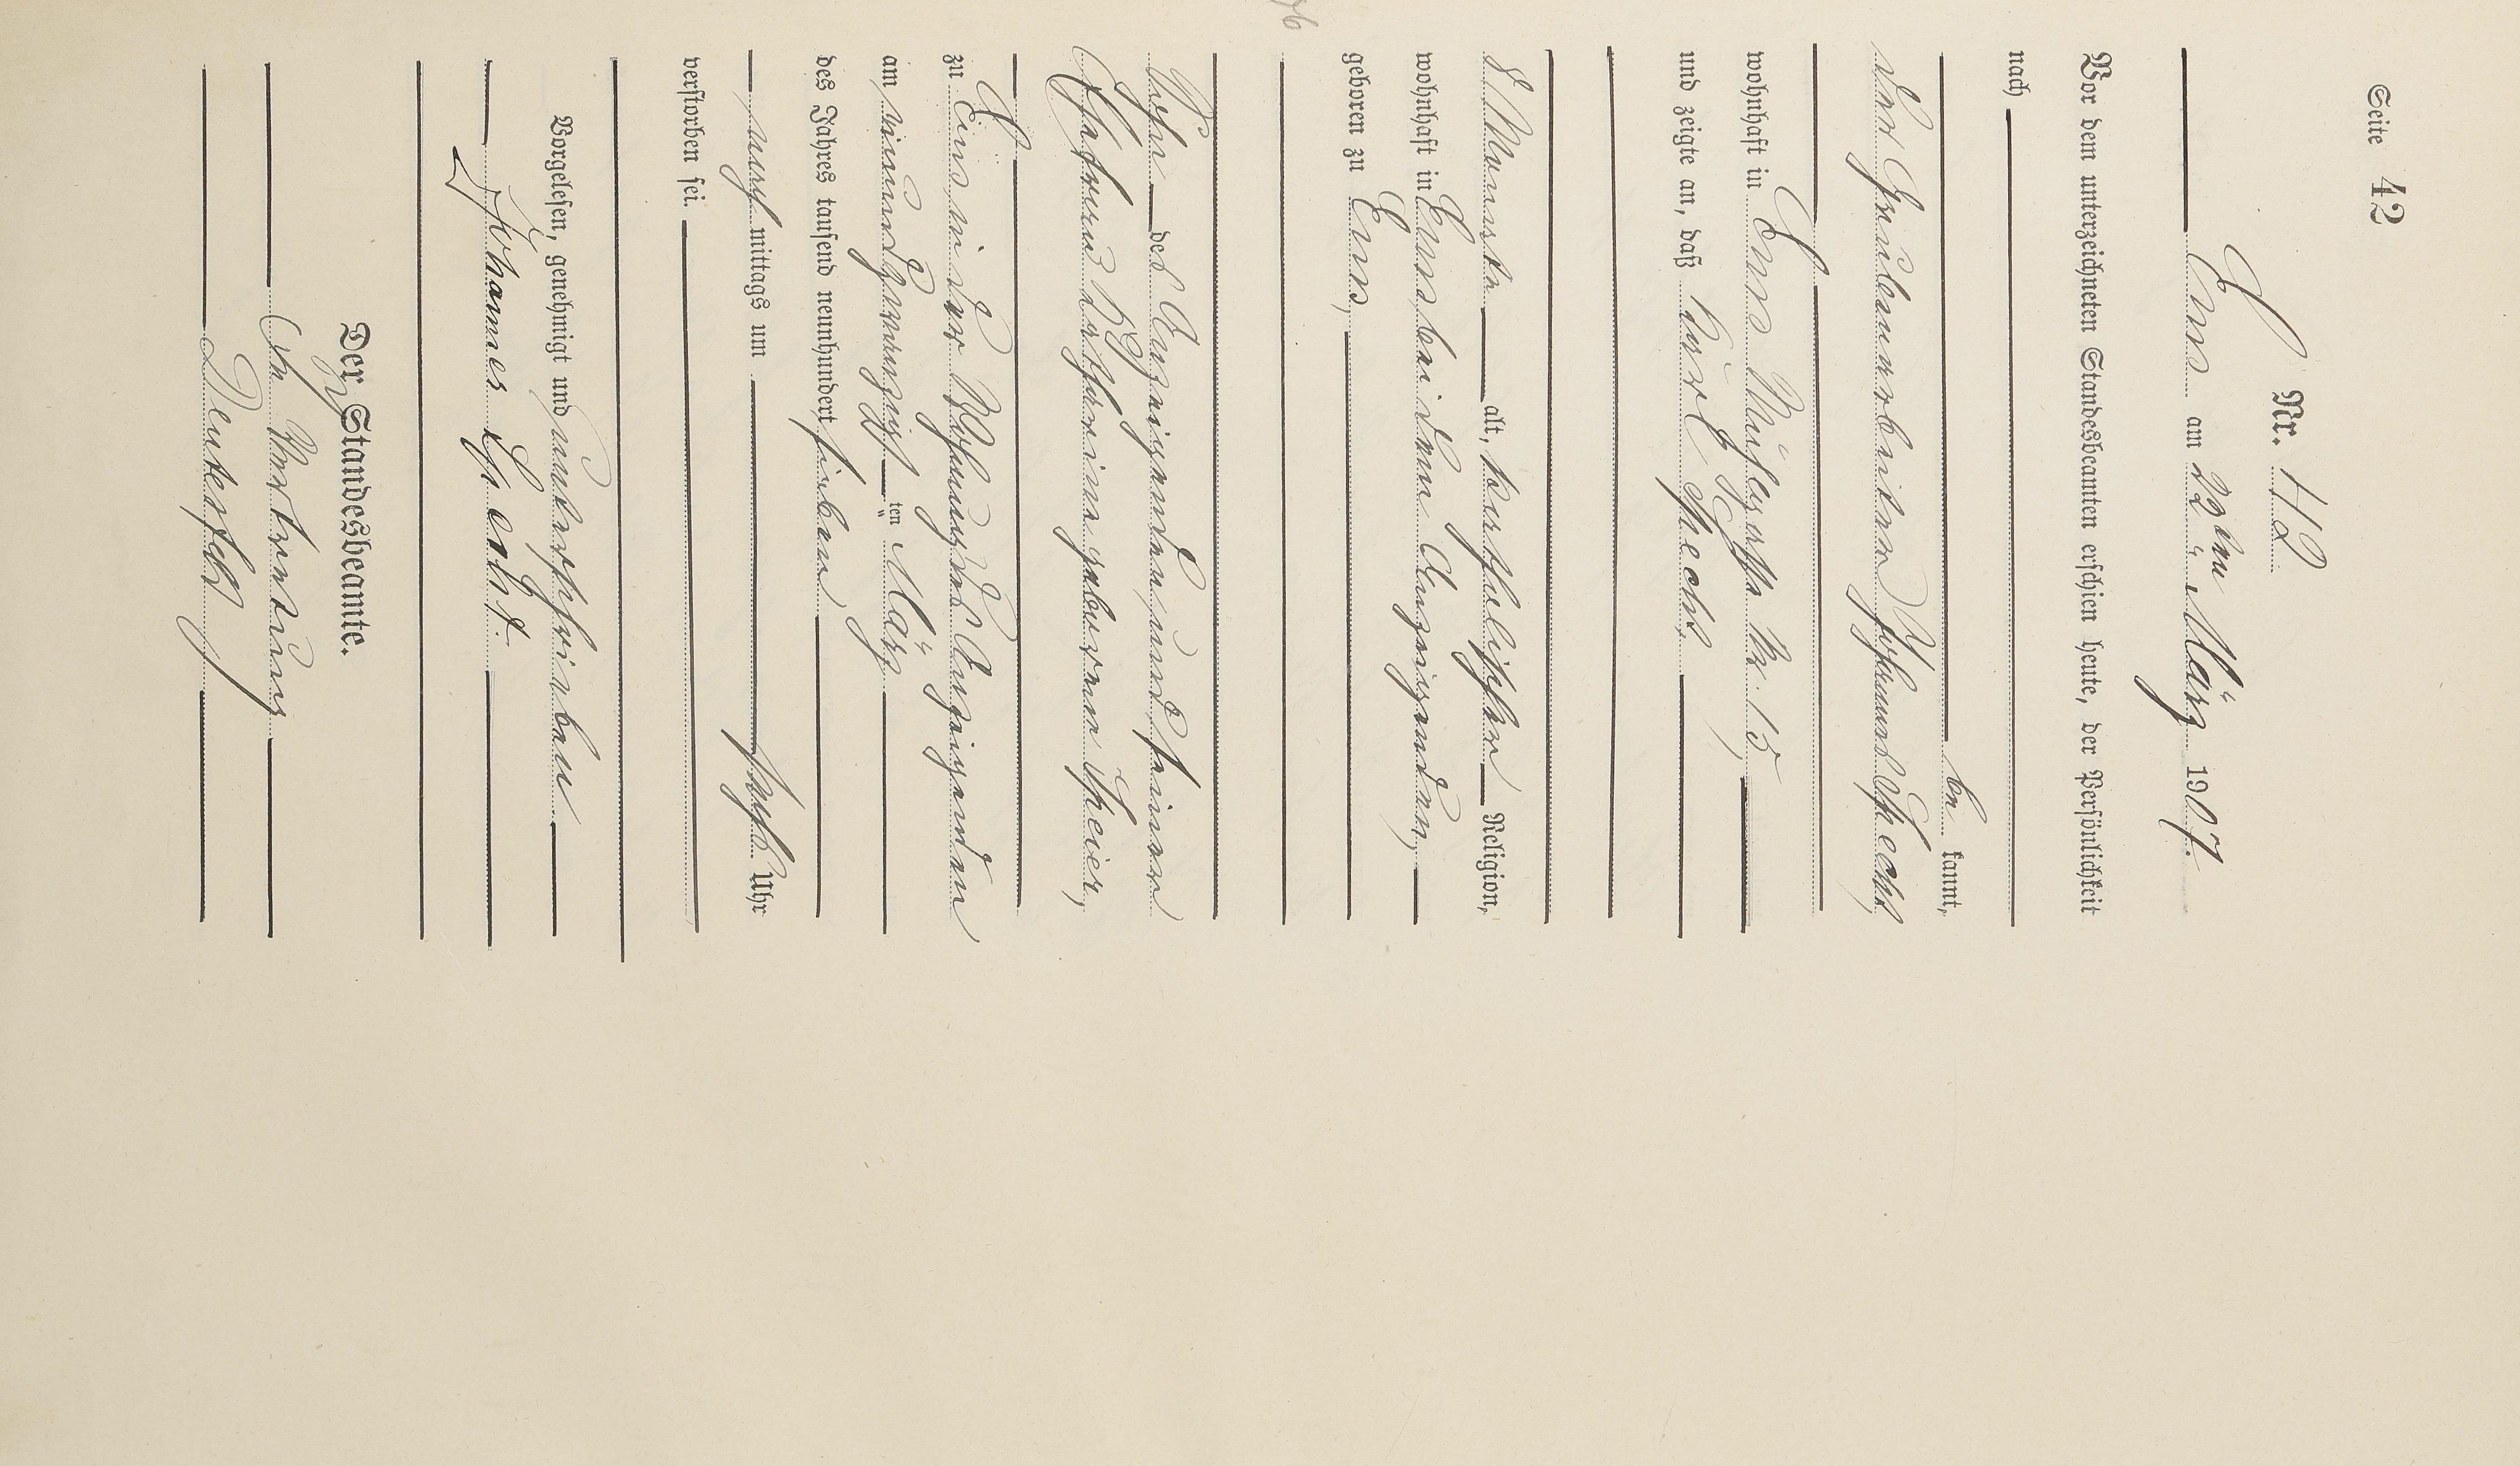 Seite 42
Nr. 42
Ems am 22ten März 1907.
Vor dem unterzeichneten Standesbeamten erschien heute, der Persönlichkeit
nach
be kannt,
der Grubenarbeiter Johannes Specht,
wohnhaft in Ems
und zeigte an, daß Karl Specht,
8 Monate alt, katholischer Religion,
wohnhaft in Ems bei dem Anzeigenden,
geboren zu Ems,
Sohn des Anzeigenden und seiner
Ehefrau Katharina geborenen Speier,
zu Ems in der Wohnung des Anzeigenden
am einundzwanzigsten März
des Jahres tausend neunhundert sieben
nach mittags um sechs Uhr
verstorben sei.
Vorgelesen, genehmigt und unterschrieben
Johannes Specht.
Der Standesbeamte.
In Vertretung